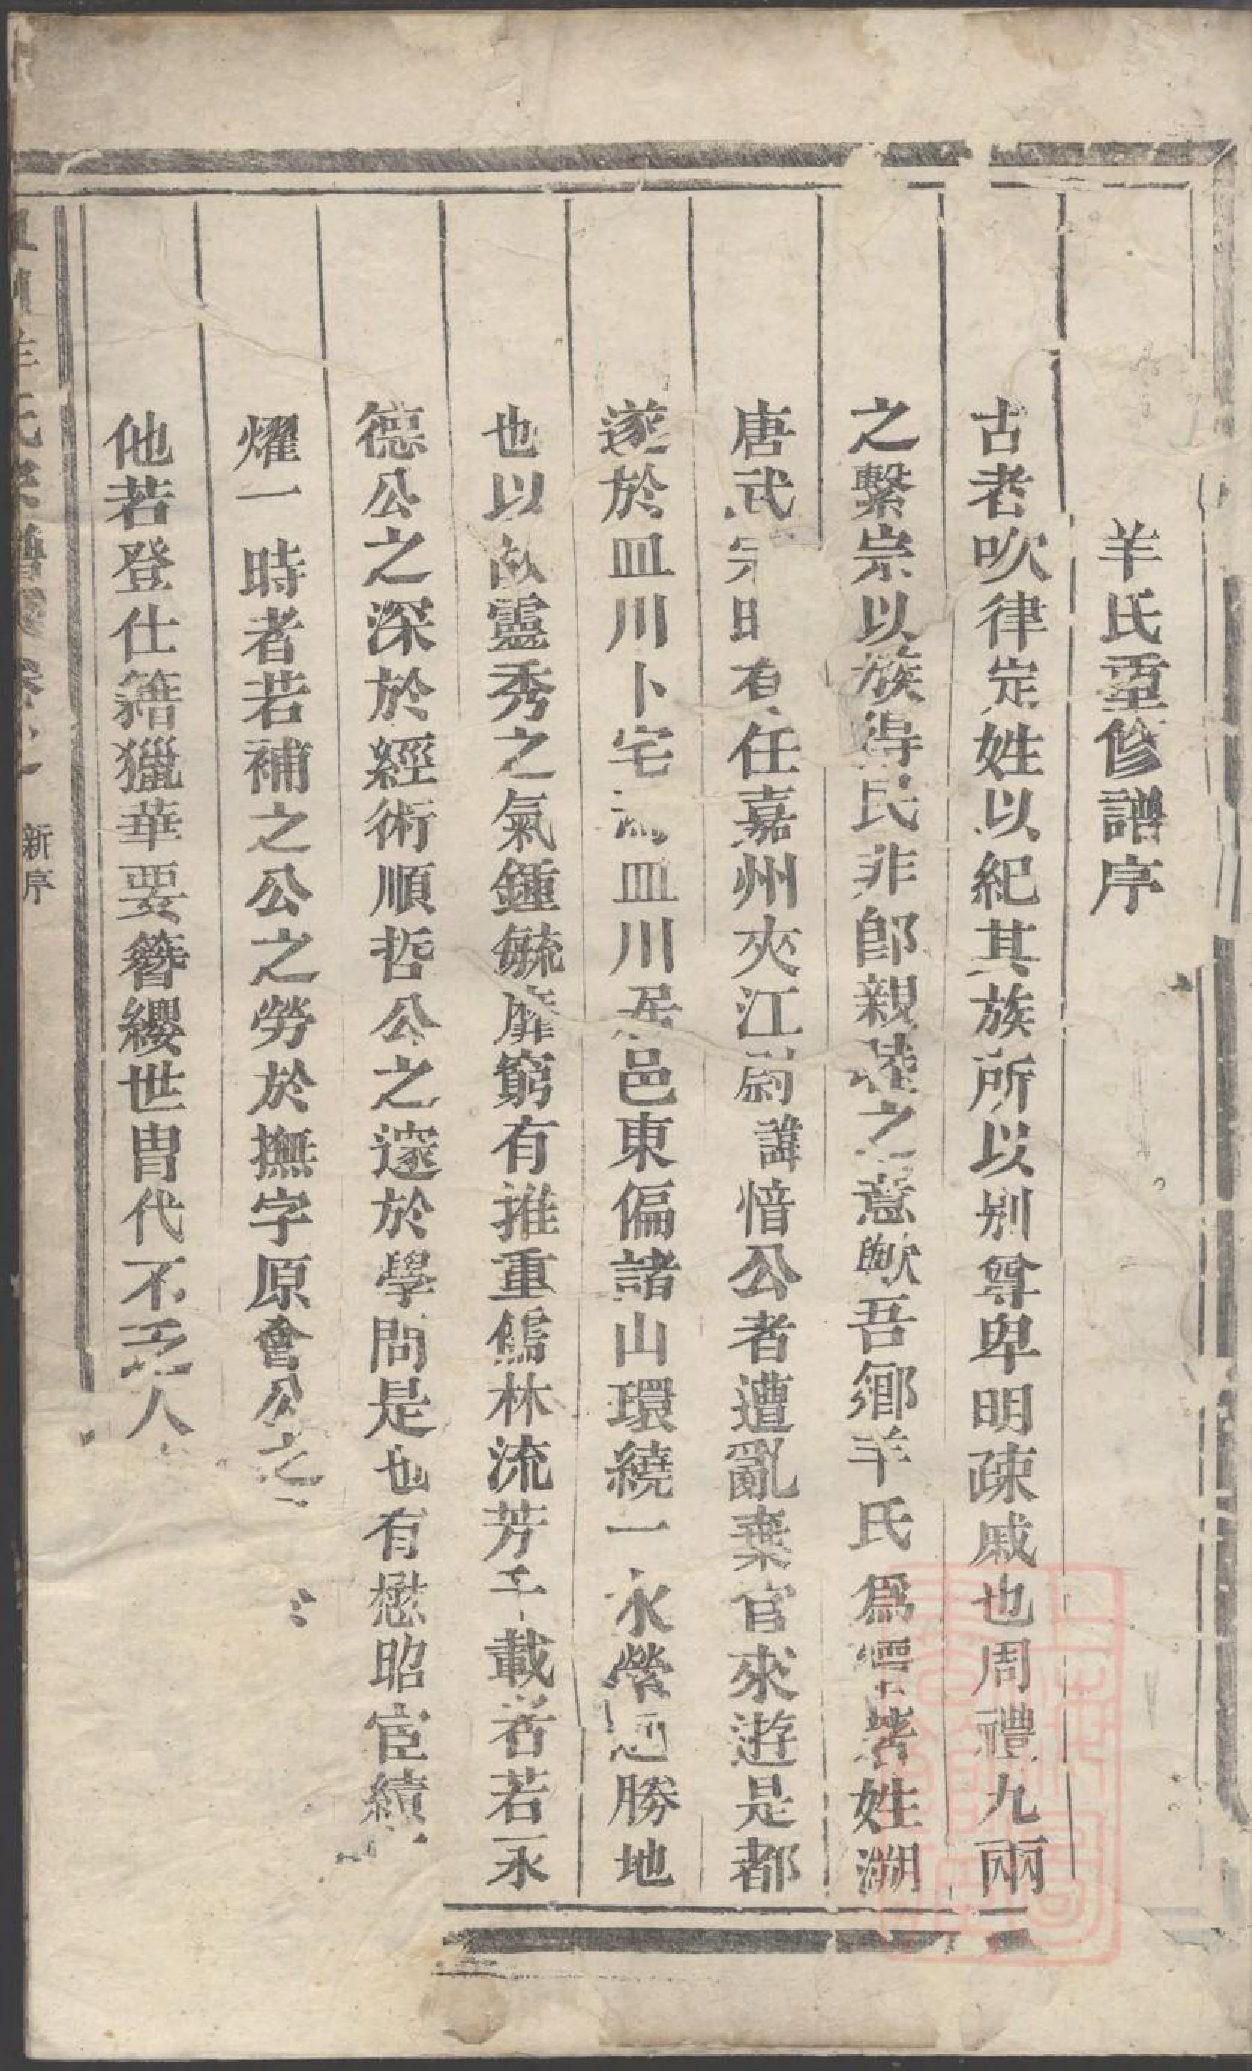 羊氏重修譜序
古者吹律定姓以紀其族所以别尊卑明疎戚也周禮九兩
之繫宗以族得民非卽親睦之意歟吾鄉羊氏爲甯著姓溯
唐武宗時有任嘉州夾江尉諱愔公者遭亂棄官來遊是都
遂於皿川卜宅焉皿川居邑東偏諸山環繞一水縈迴勝地
也以故靈秀之氣鍾毓靡窮有推重儒林流芳千載者若永
德公之深於經術順哲公之邃於學問是也有懋昭宦績
燿一時者若補之公之勞於撫字原會公之
他若登仕籍獵華要簪纓世胄代不乏人
羊氏宗譜 卷之一 新序